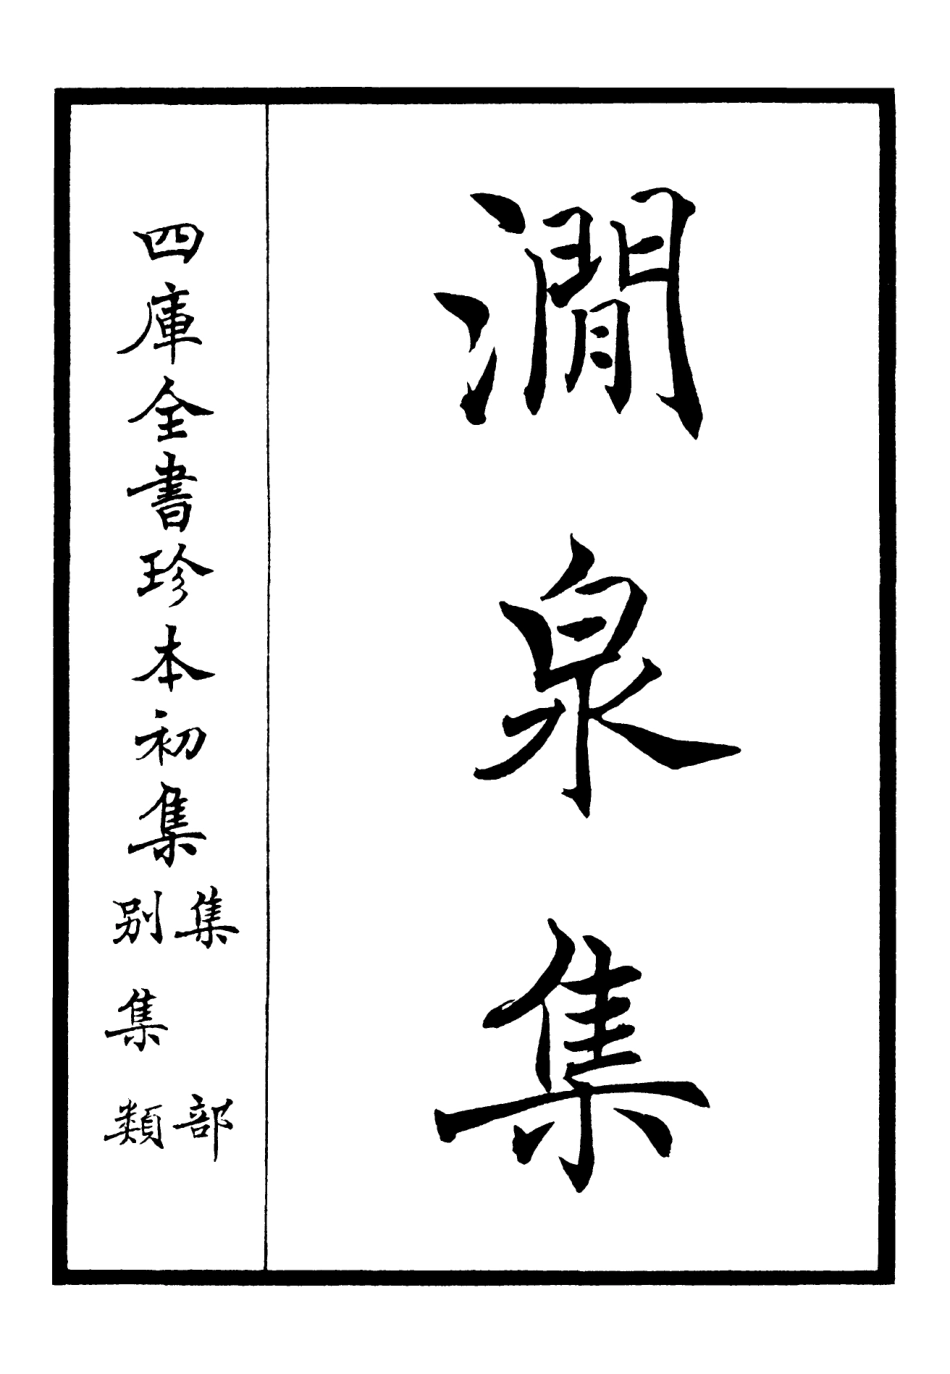 澗泉集
四庫全書珍本初集
集部
別集類